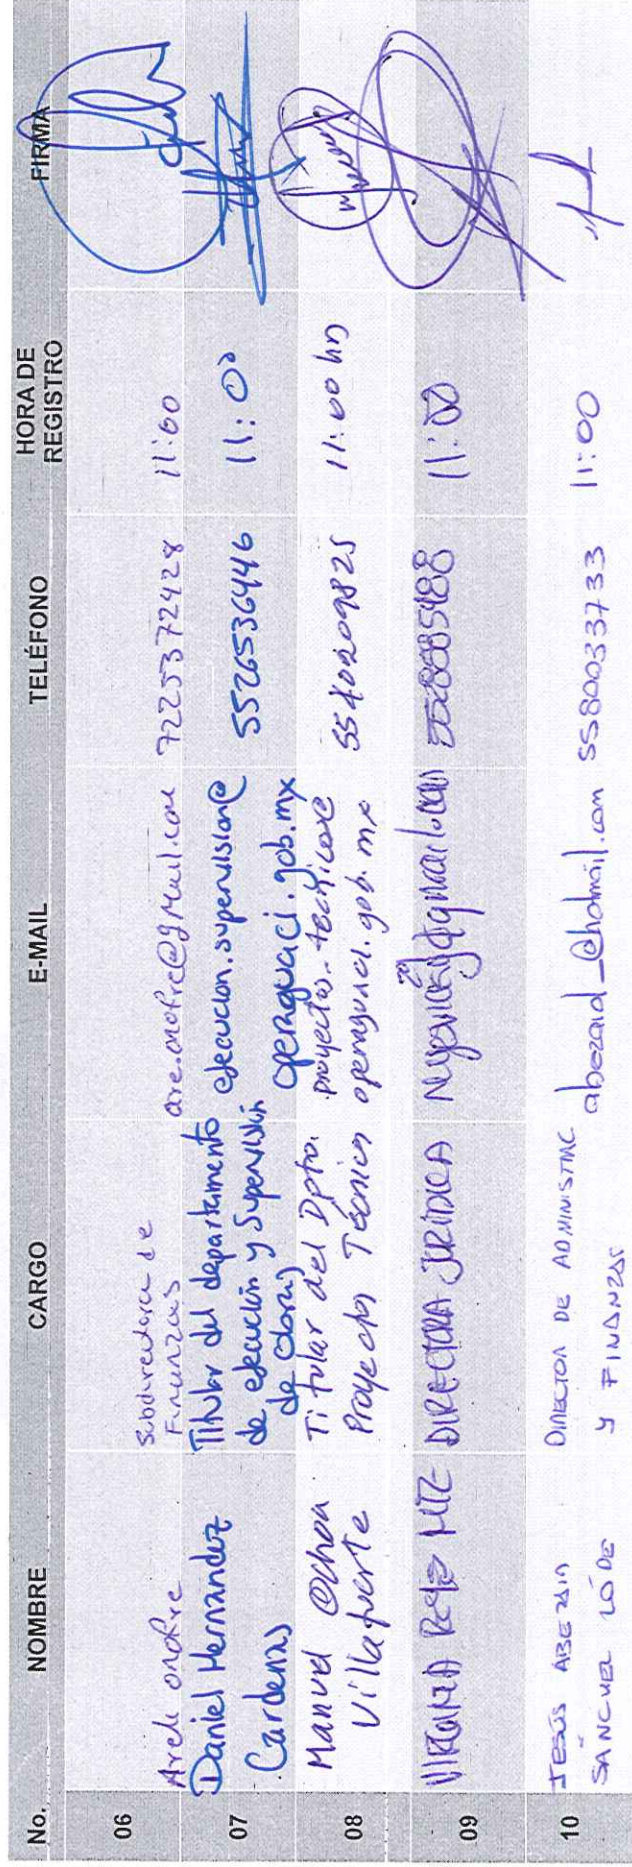 No. NOMBRE CARGO E-MAIL TELÉFONO HORA DE REGISTRO FIRMA
06
Areli onofre
Subdirectora de
Finanzas
are.onofre@gmail.com
7225372428
11:00
07
Daniel Hernandez
Cardenas
Titular del departamento
de ejecución y Supervisión
de Obras
ejecucion.supervision@
operaguaci.gob.mx
5526536446
11:00
08
Manuel Ochoa
Villafuerte
Titular del Dpto.
Proyectos Técnicos
operaguaci.gob.mx
5540209825
11:00 hrs
09
VIRGINIA
DIRECTORA JURÍDICA
11:00
10
JESÚS ABEZAID
SÁNCHEZ
DIRECTOR DE ADMINISTRAC
Y FINANZAS
abezaid_@hotmail.com
5580033733
11:00